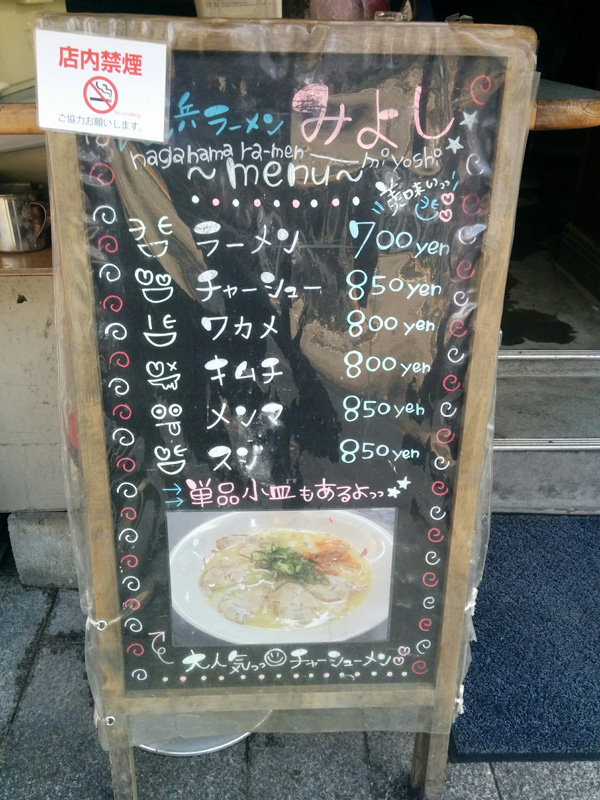 店内禁煙
No smoking
ご協力お願いします。
浜ラーメン みよし
nagahama ra-men miyoshi
～menu～
美味いっっ
ラーメン 700yen
チャーシュー 850yen
ワカメ 800yen
キムチ 800yen
メンマ 850yen
スジ 850yen
→→単品小皿もあるよっっ
大人気っっチャーシューメン